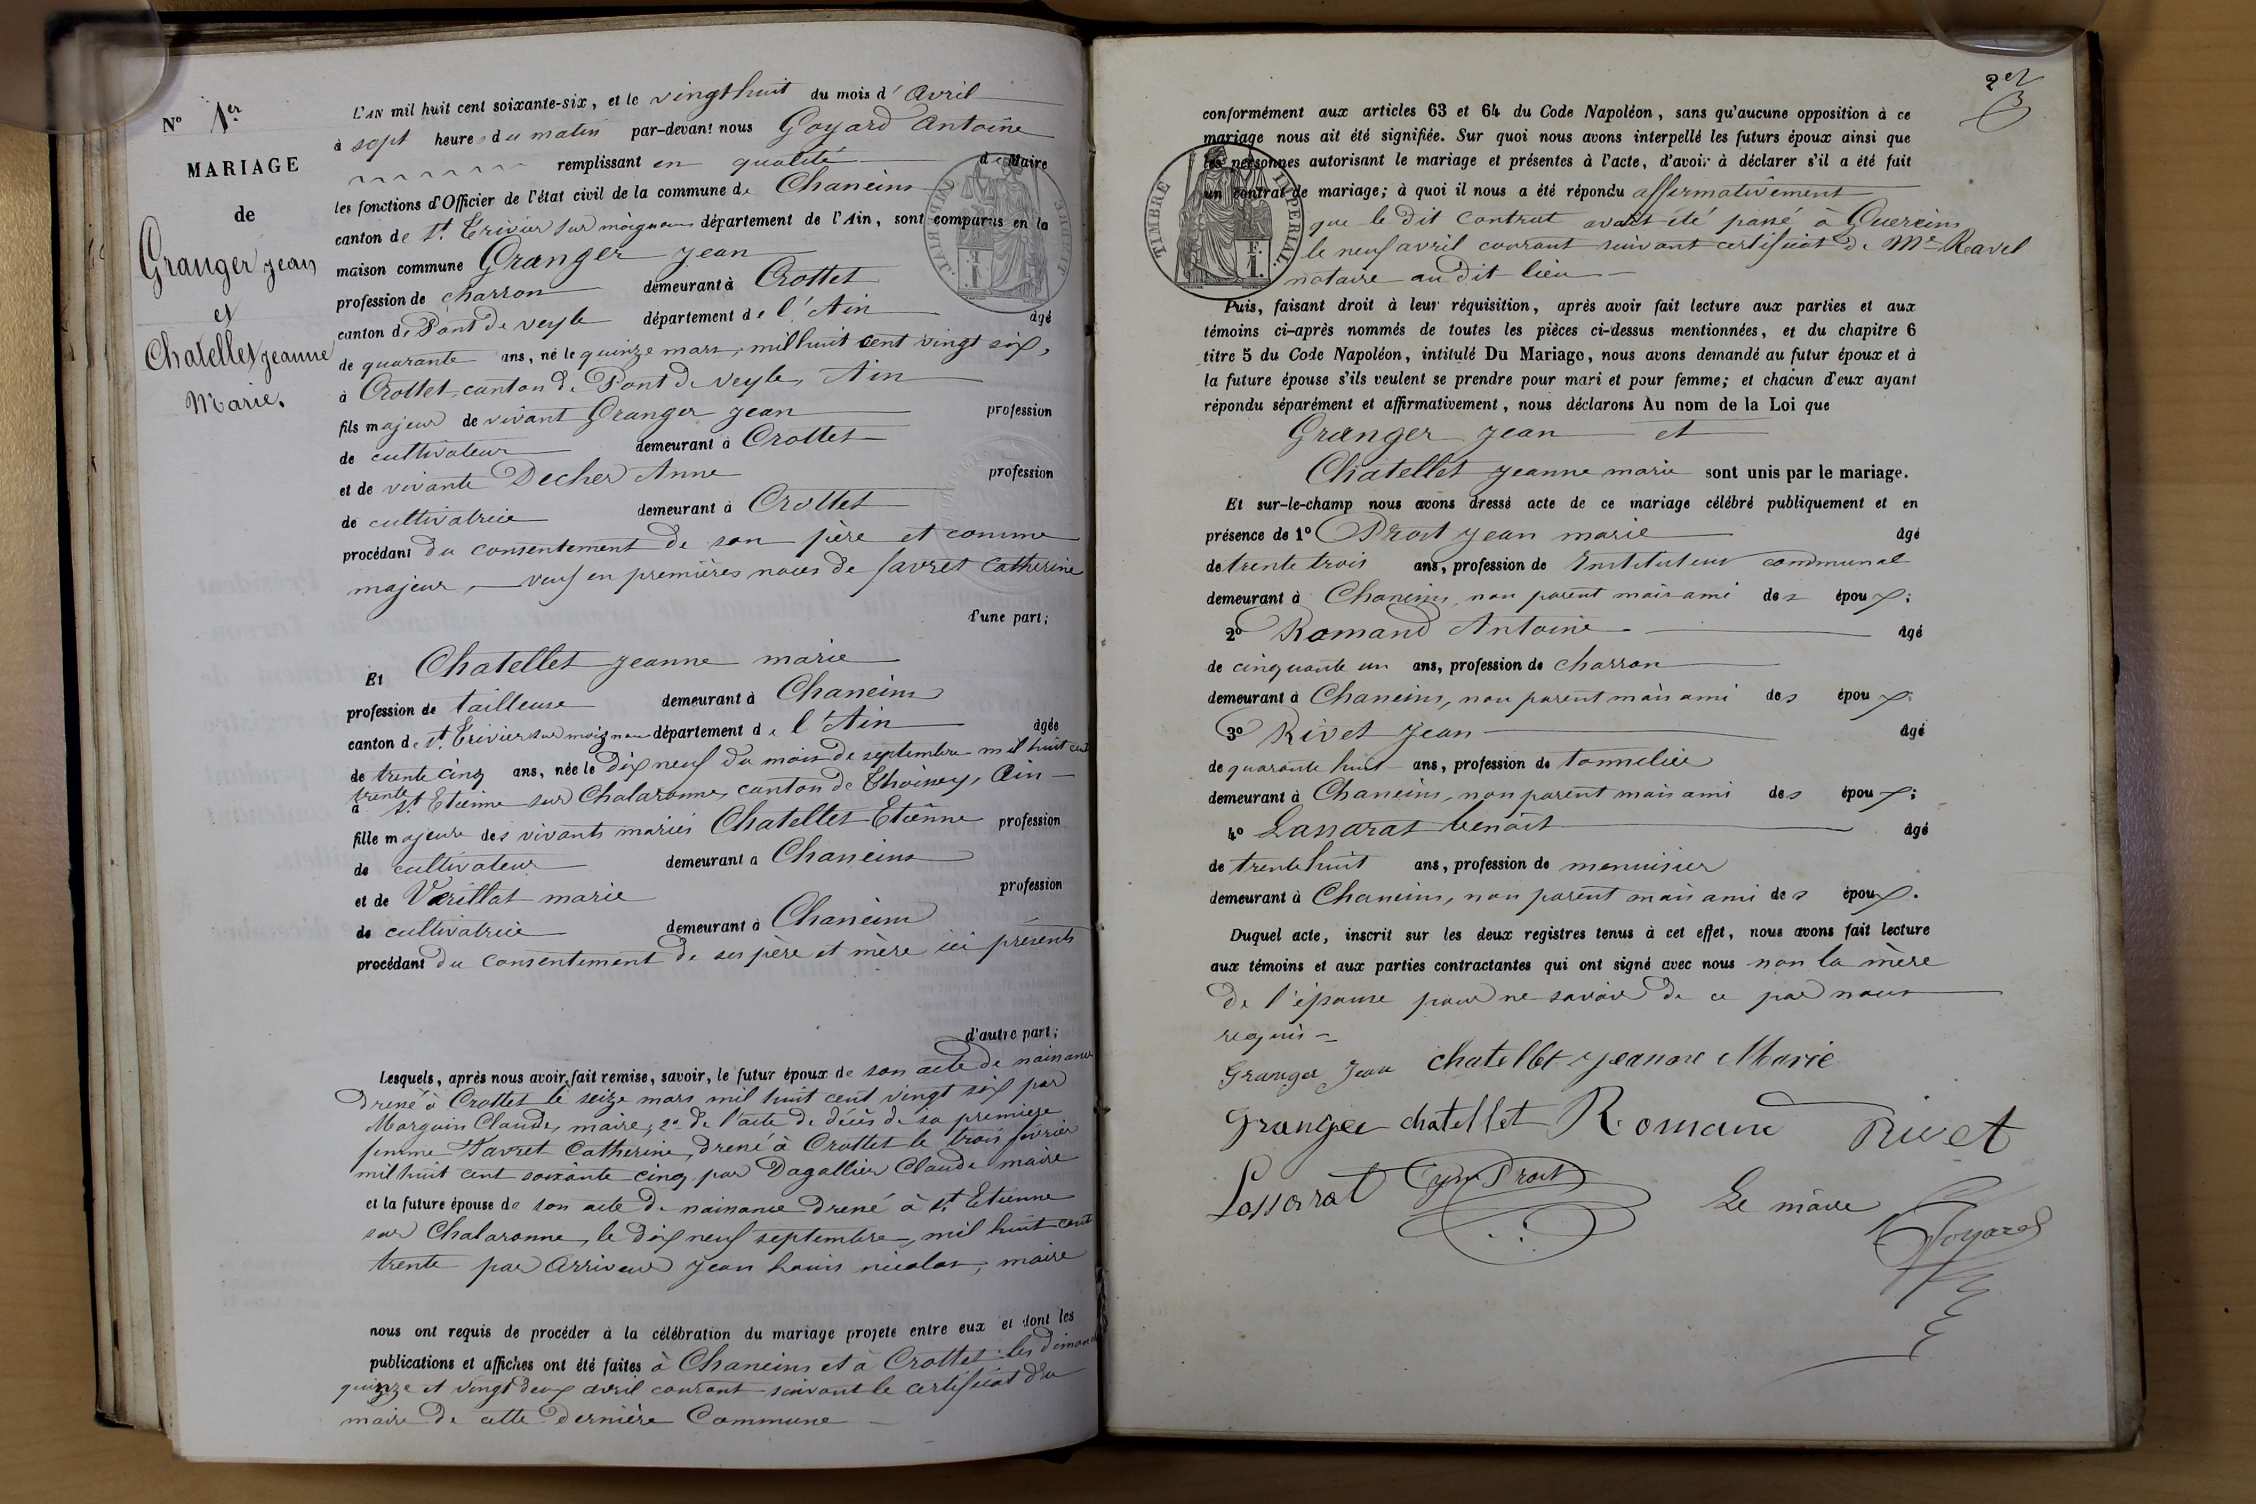 N° 1er
MARIAGE
de
Granger Jean
et
Chatellet Jeanne
Marie.
L'AN mil huit cent soixante-six, et le vingt huit du mois d'Avril
à sept heures du matin par-devant nous Goyard Antoine
remplissant en qualité de Maire
les fonctions d'Officier de l'état civil de la commune de Chaneins
canton de St. Trivier sur moignans département de l'Ain, sont comparus en la
maison commune Granger Jean
profession de charron demeurant à Crottet
canton de Pont de veyle département de l'Ain âgé
de quarante ans, né le quinze mars, mil huit cent vingt six,
à Crottet canton de Pont de veyle, Ain
fils majeur de vivant Granger Jean profession
de cultivateur demeurant à Crottet
et de vivante Decher Anne profession
de cultivatrice demeurant à Crottet
procédant du consentement de son père et comme
majeur, veuf en premières noces de favret Catherine
d'une part;
Et Chatellet Jeanne marie
profession de tailleuse demeurant à Chaneins
canton de St. Trivier sur moignans département de l'Ain âgée
de trente cinq ans, née le dix neuf du mois de septembre mil huit cent
trente
à St Etienne sur Chalaronne, canton de Thoissey, Ain
fille majeure des vivants mariés Chatellet Etienne profession
de cultivateur demeurant à Chaneins
et de Verillat marie profession
de cultivatrice demeurant à Chaneins
procédant du consentement de ses père et mère ici présents
d'autre part;
Lesquels, après nous avoir fait remise, savoir, le futur époux de son acte de naissance
dressé à Crottet le seize mars mil huit cent vingt six par
Morguin Claude, maire, 2° de l'acte de décès de sa première
femme Favret Catherine, dressé à Crottet le trois février
mil huit cent soixante cinq par Dagallier Claude maire
et la future épouse de son acte de naissance dressé à St Etienne
sur Chalaronne, le dix neuf septembre, mil huit cent
trente par Arriveur Jean Louis nicolas, maire
nous ont requis de procéder à la célébration du mariage projeté entre eux et dont les
publications et affiches ont été faites à Chaneins et à Crottet les diman
quinze et vingt deux avril courant suivant le certificat du
maire de cette dernière Commune
2 et
3
TIMBRE IMPERIAL
conformément aux articles 63 et 64 du Code Napoléon, sans qu'aucune opposition à ce
mariage nous ait été signifiée. Sur quoi nous avons interpellé les futurs époux ainsi que
les personnes autorisant le mariage et présentes à l'acte, d'avoir à déclarer s'il a été fait
un contrat de mariage; à quoi il nous a été répondu affirmativement
que le dit contrat avait été passé à Guereins
le neuf avril courant suivant certificat de Me Ravel
notaire au dit lieu
Puis, faisant droit à leur réquisition, après avoir fait lecture aux parties et aux
témoins ci-après nommés de toutes les pièces ci-dessus mentionnées, et du chapitre 6
titre 5 du Code Napoléon, intitulé Du Mariage, nous avons demandé au futur époux et à
la future épouse s'ils veulent se prendre pour mari et pour femme; et chacun d'eux ayant
répondu séparément et affirmativement, nous déclarons Au nom de la Loi que
Granger Jean et
Chatellet Jeanne marie sont unis par le mariage.
Et sur-le-champ nous avons dressé acte de ce mariage célébré publiquement et en
présence de 1° Proit Jean marie âgé
de trente trois ans, profession de Instituteur communal
demeurant à Chaneins, non parent mais ami des époux;
2° Romand Antoine âgé
de cinquante un ans, profession de charron
demeurant à Chaneins, non parent mais ami des époux
3° Rivet Jean âgé
de quarante huit ans, profession de tonnelier
demeurant à Chaneins, non parent mais ami des époux;
4° Lassarat benoit âgé
de trente huit ans, profession de menuisier
demeurant à Chaneins, non parent mais ami des époux.
Duquel acte, inscrit sur les deux registres tenus à cet effet, nous avons fait lecture
aux témoins et aux parties contractantes qui ont signé avec nous non la mère
de l'épouse pour ne savoir de ce par nous
requis
Granger Jean chatellet jeanne Marie
Granger chatellet Romand Rivet
Lassarat Proit Le maire Goyard